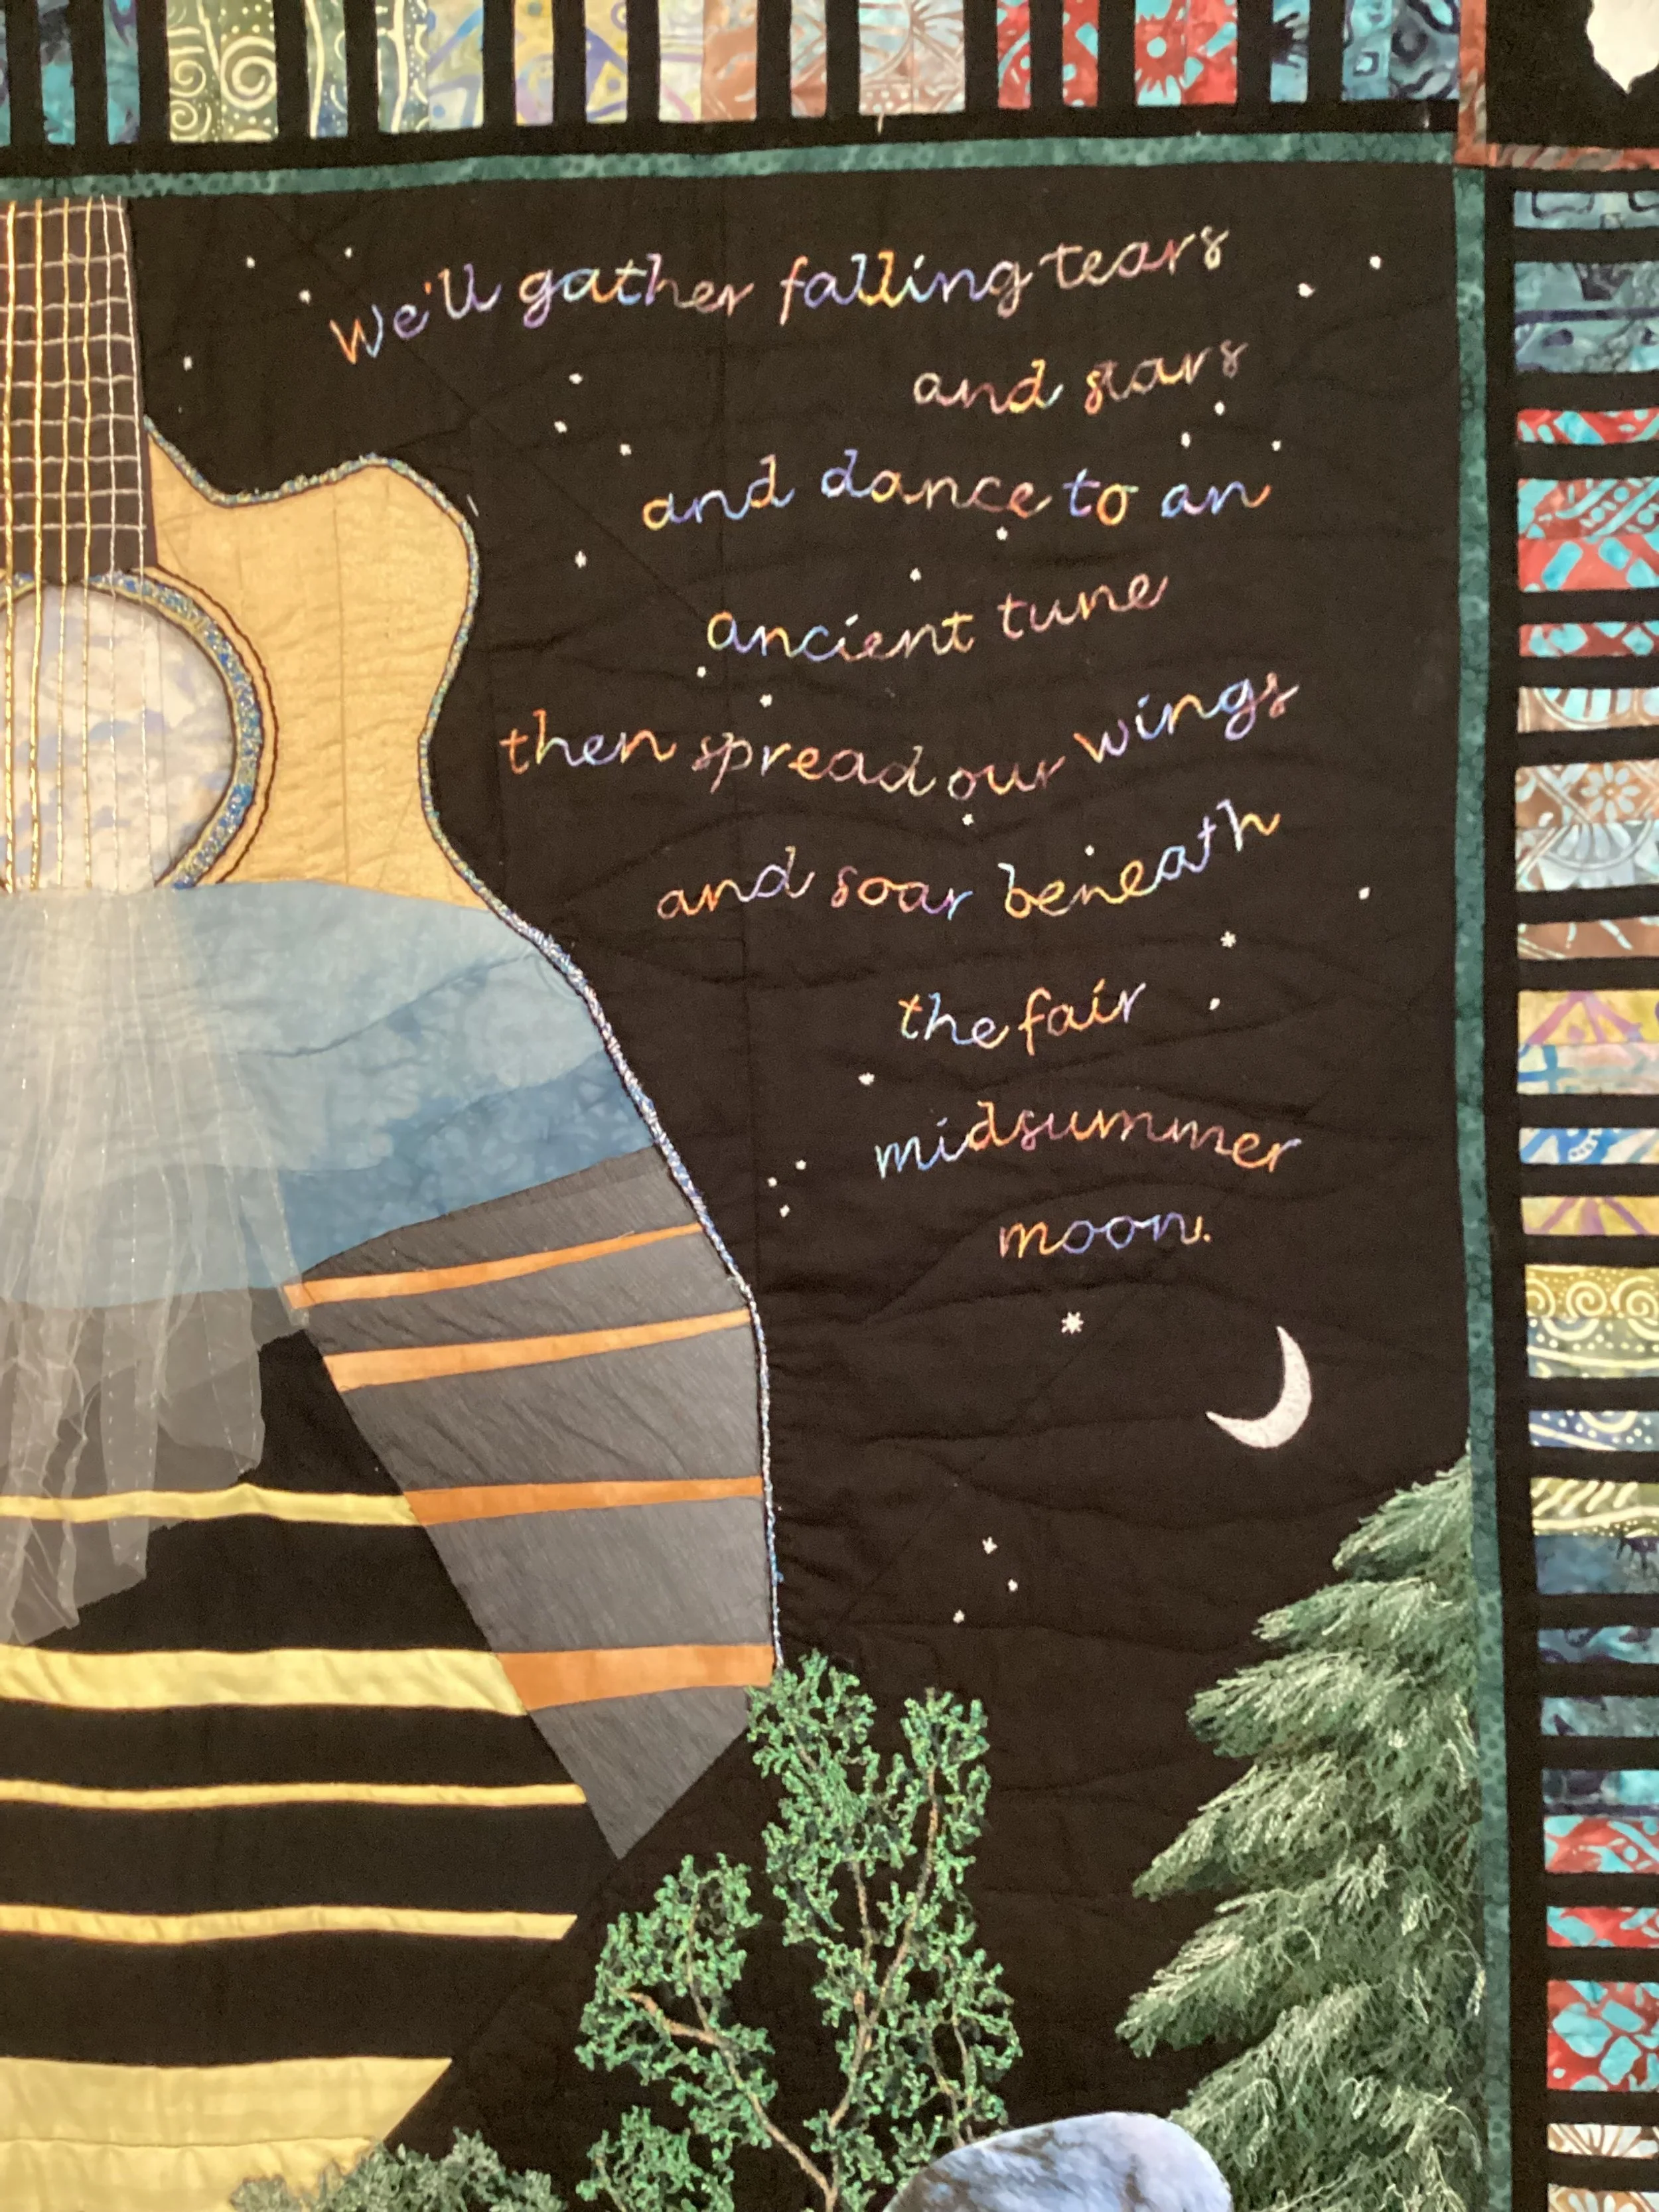 We'll gather falling tears
and stars
and dance to an
ancient tune
then spread our wings
and soar beneath
the fair
midsummer
moon.